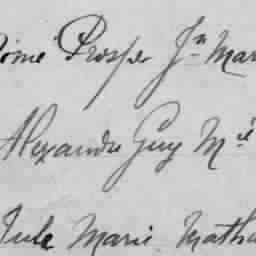 Prosper Jn Mar
Alexandre Guy M.el
Jule Marie Matha